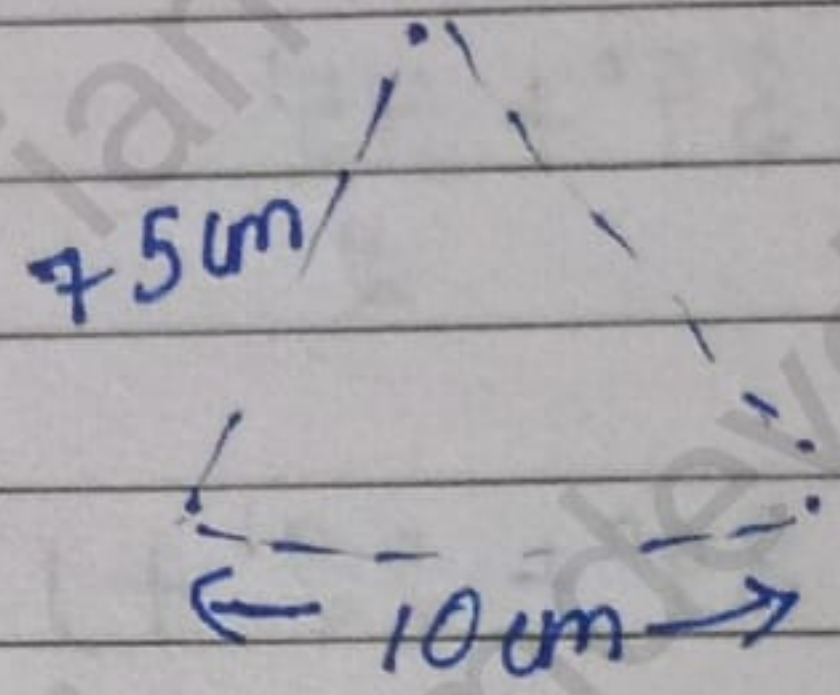 75cm
10cm